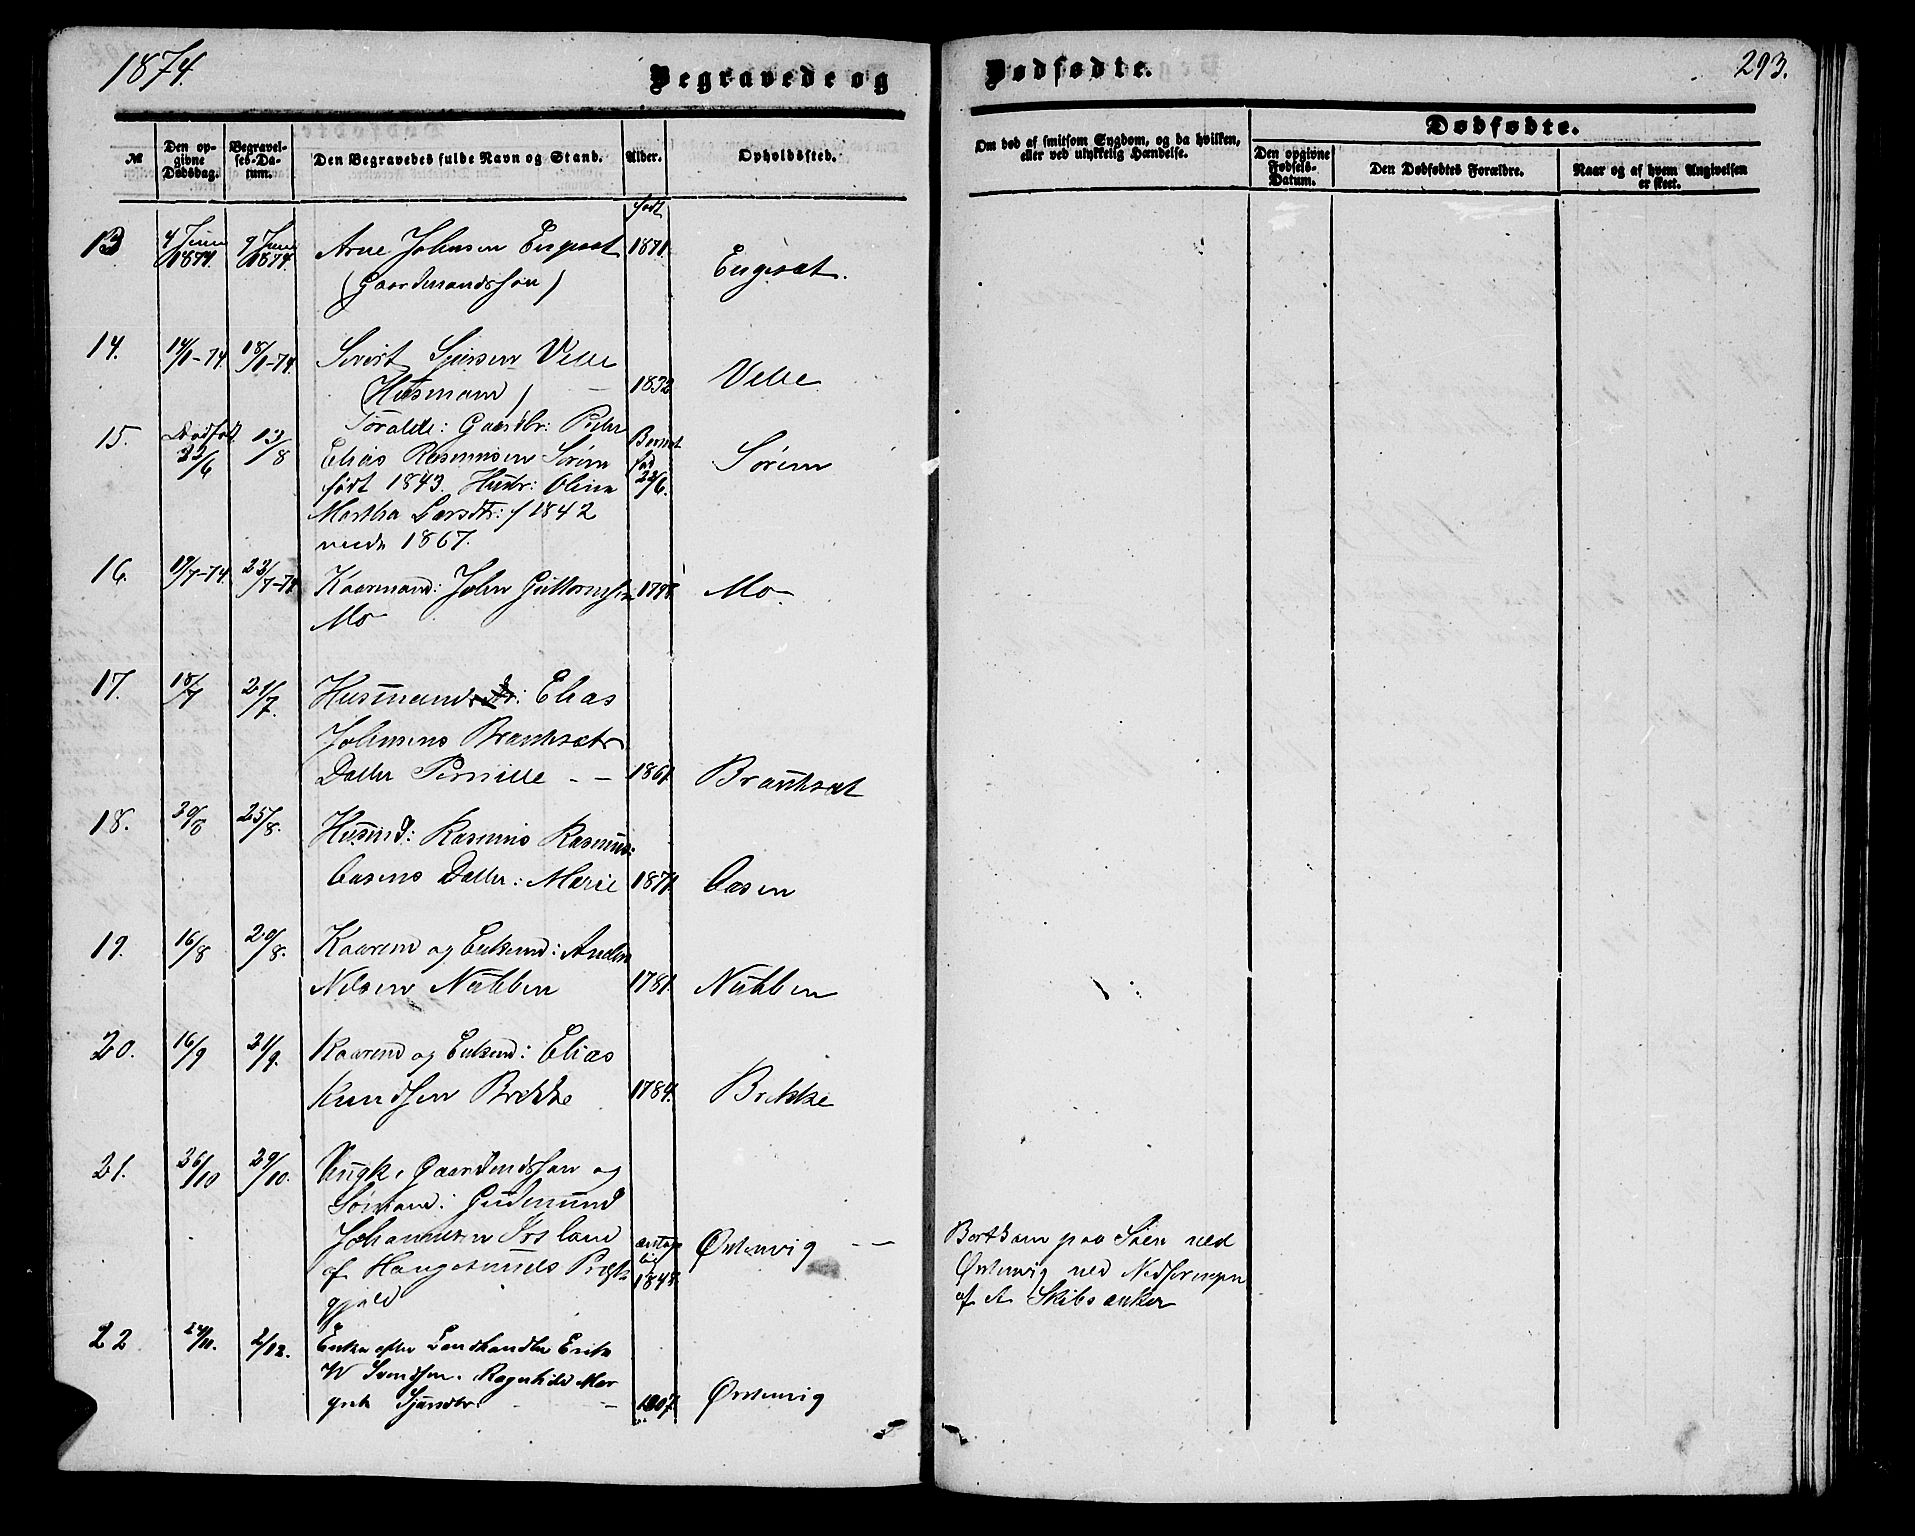 1874.
Begravede og
Dødfødte.
293.
№
Den op-
givne
Dødsdag.
Begravel-
ses-Da-
tum.
Den Begravedes fulde Navn og Stand.
Alder.
Opholdssted.
Om død af smitsom Sygdom, og da hvilken,
eller ved ulykkelig Hændelse.
Dødfødte.
Den opgivne
Fødsels-
Datum.
Den Dødfødtes Forældre.
Naar og af hvem Angivelsen
er skeet.
født
13
4 Juni
1874.
9 Juni
1874.
Arne Johnsen Engeset
1871.
Engeset.
(Gaardmandssøn)
14.
14/1-74.
18/1-74.
Sivert Velle
(Husmand)
1832
Velle
15.
Dødfødt
22/6
13/8
Foralde: Gaardbr: Peder
Elias Rasmussen Sørem
født 1843. Hustr: Oline
Martha Larsdtr: f 1842
viede 1867.
født
22/6.
Sørem
16.
19/7-74.
23/7-74
Kaarmand: John Guttormsen
Mo
Mo
17.
18/7
21/7.
Husmand: Elias
Johnsens Brautsæt
Datter Pernille - -
1861.
Brautset
18.
20/8
25/8.
Husmd: Rasmus Rasmus:
Aasens Datter: Marie
1871.
Aasen
19.
16/8
20/8.
Kaarmd og Enkemd: Anders
Nilsen Nubben
1781.
Nubben
20.
16/9
21/9.
Kaarmd og Enkemd: Elias
Knudsen Brekke
1784.
Brekke
21.
26/10
29/10.
Ungk, Gaardmdssøn og
Sømand: Gudmund
Johannesen
af Haugesunds Præste
gjeld
1848.
Østenvig - -
Bortkom paa Søen ved
Østenvig ved
af et Skibsanker
22
24/11.
2/12.
Enke efter Landhandler Erik
W Svendsen. Ragnhild Mar
grete
1807.
Østenvig